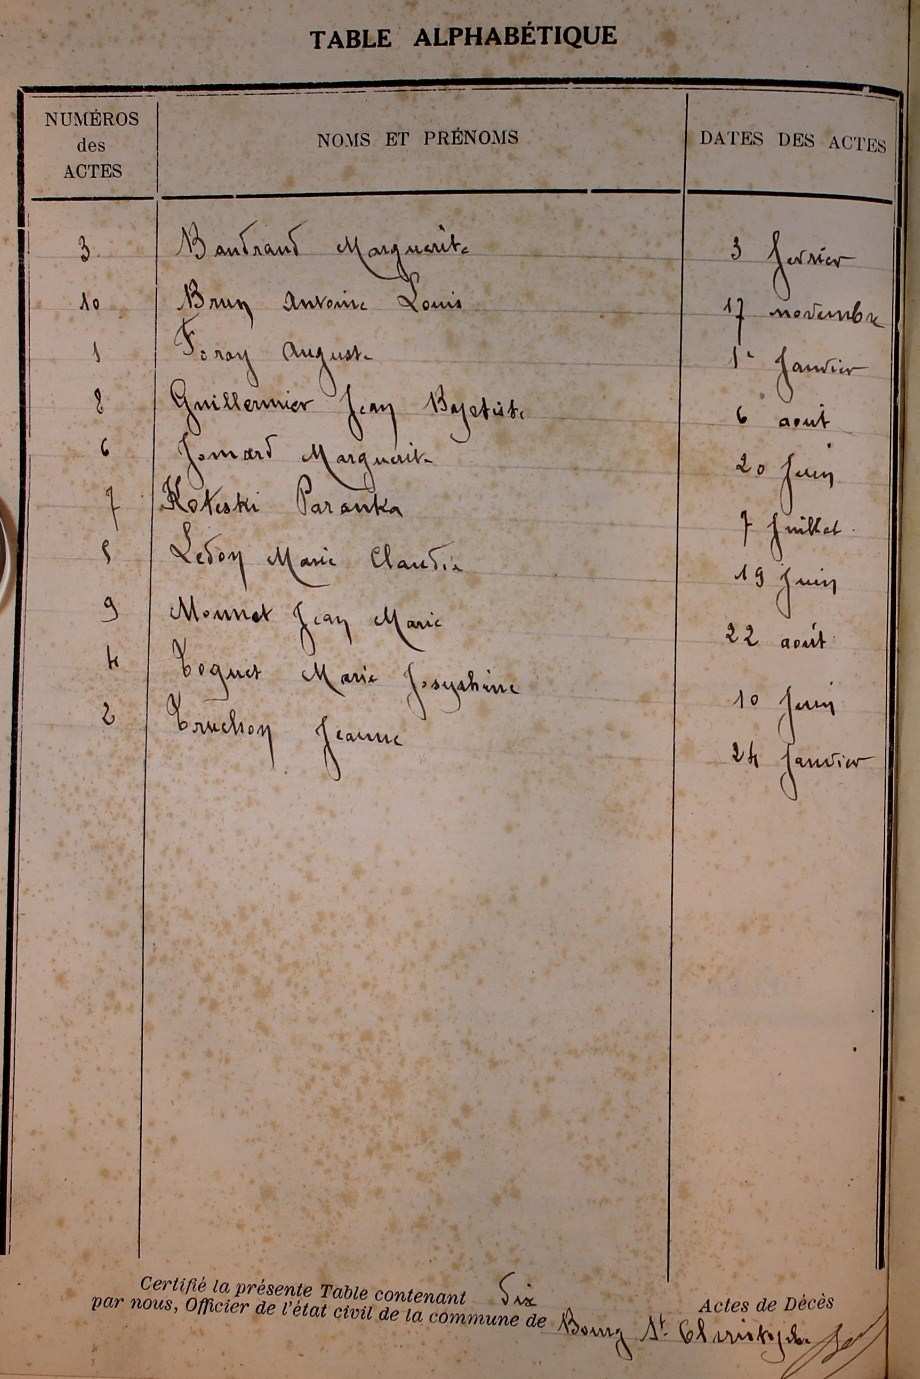 TABLE ALPHABÉTIQUE
NUMÉROS des ACTES NOMS ET PRÉNOMS DATES DES ACTES
3 Baudrand Marguerite 3 fevrier
10 Brun Antoine Louis 17 novembre
1 Foray Auguste 1e Janvier
8 Guillermier Jean Baptiste 6 août
6 Jomard Marguerite 20 Juin
7 Koteski Paranka 7 Juillet
5 Ledon Marie Claudia 19 Juin
9 Monnet Jean Marie 22 août
4 Toguet Marie Josephine 10 Juin
2 Truchon Jeanne 24 Janvier
Certifié la présente Table contenant dix Actes de Décès
par nous, Officier de l'état civil de la commune de Bourg St Christophe